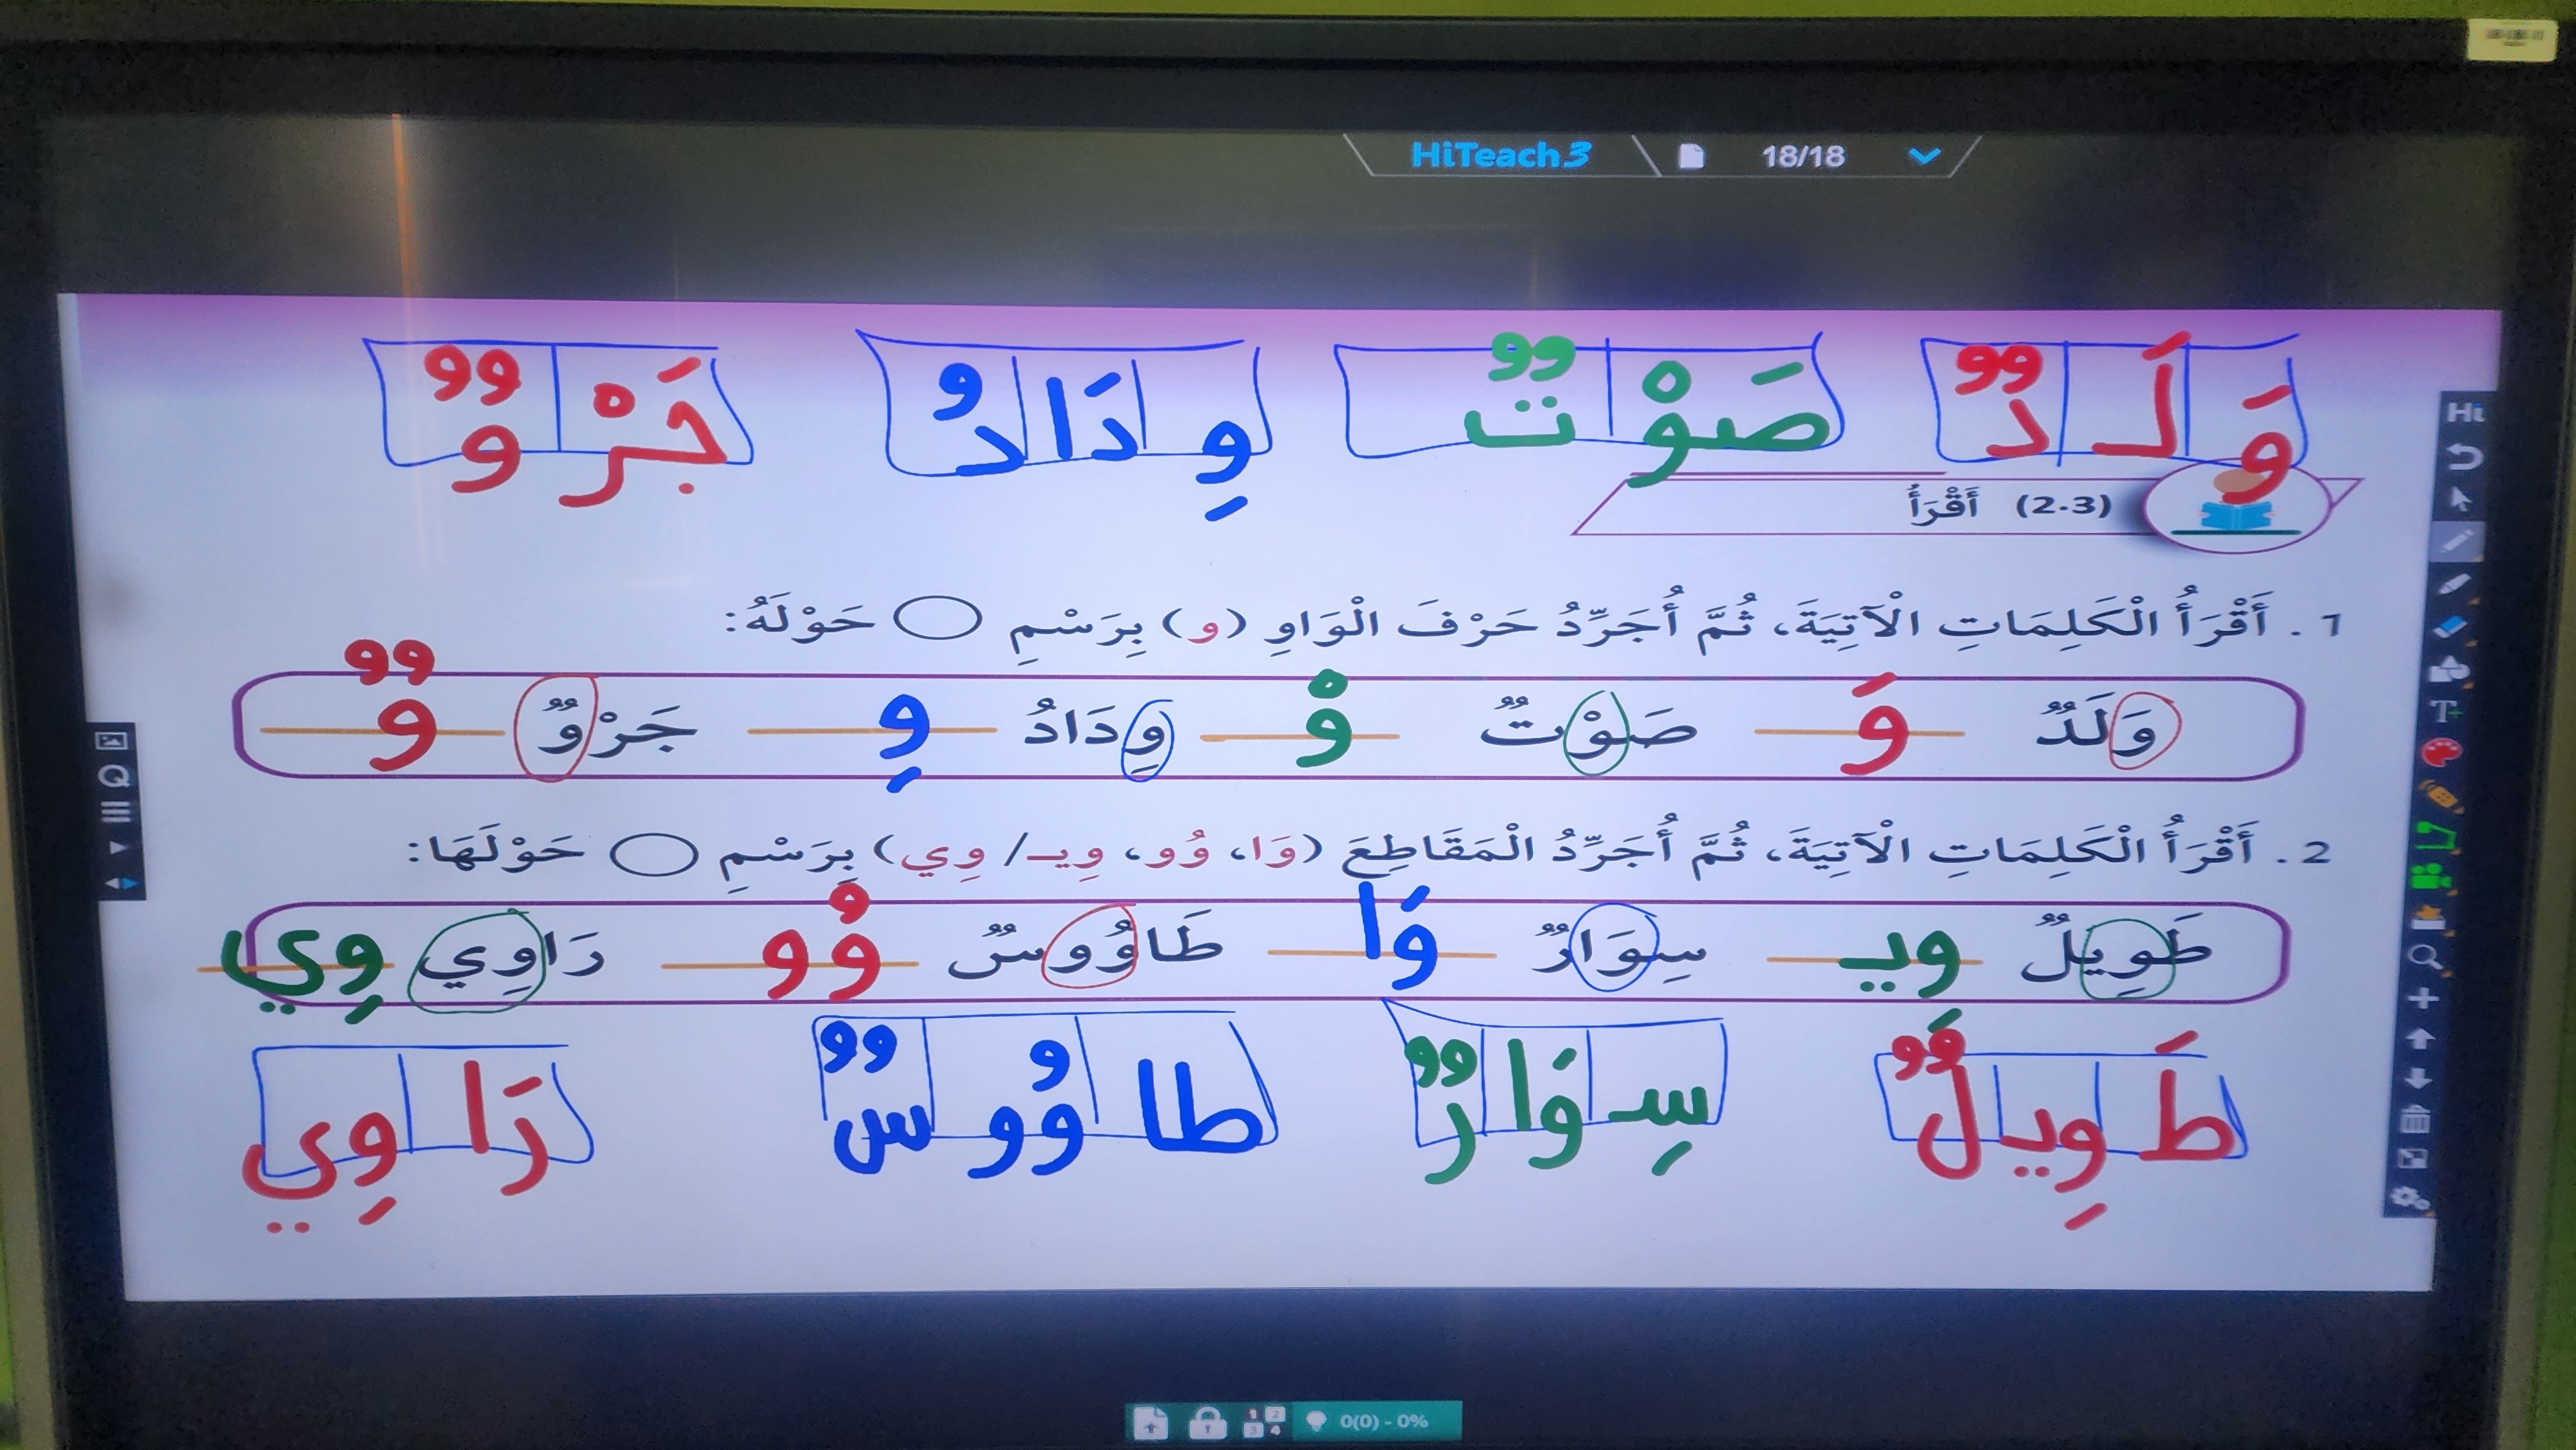 HiTeach3 18/18
وَ لَـ دٌ صَوْ تٌ وِ دَا دُ جَرْ وٌ
(2-3) أَقْرَأُ
1. أَقْرَأُ الْكَلِمَاتِ الْآتِيَةَ، ثُمَّ أُجَرِّدُ حَرْفَ الْوَاوِ (و) بِرَسْمِ حَوْلَهُ:
وَلَدٌ وَ صَوْتٌ وْ وِدَادُ وِ جَرْوٌ وٌ
2. أَقْرَأُ الْكَلِمَاتِ الْآتِيَةَ، ثُمَّ أُجَرِّدُ الْمَقَاطِعَ (وَا، وُو، وِيـ/ وِي) بِرَسْمِ حَوْلَهَا:
طَوِيلٌ ويـ سِوَارٌ وَا طَاوُوسٌ وُو رَاوِي وِي
طَ وِيـ لٌ سِـ وَا رٌ طا وُو سٌ رَا وِي
Hi
0(0) - 0%